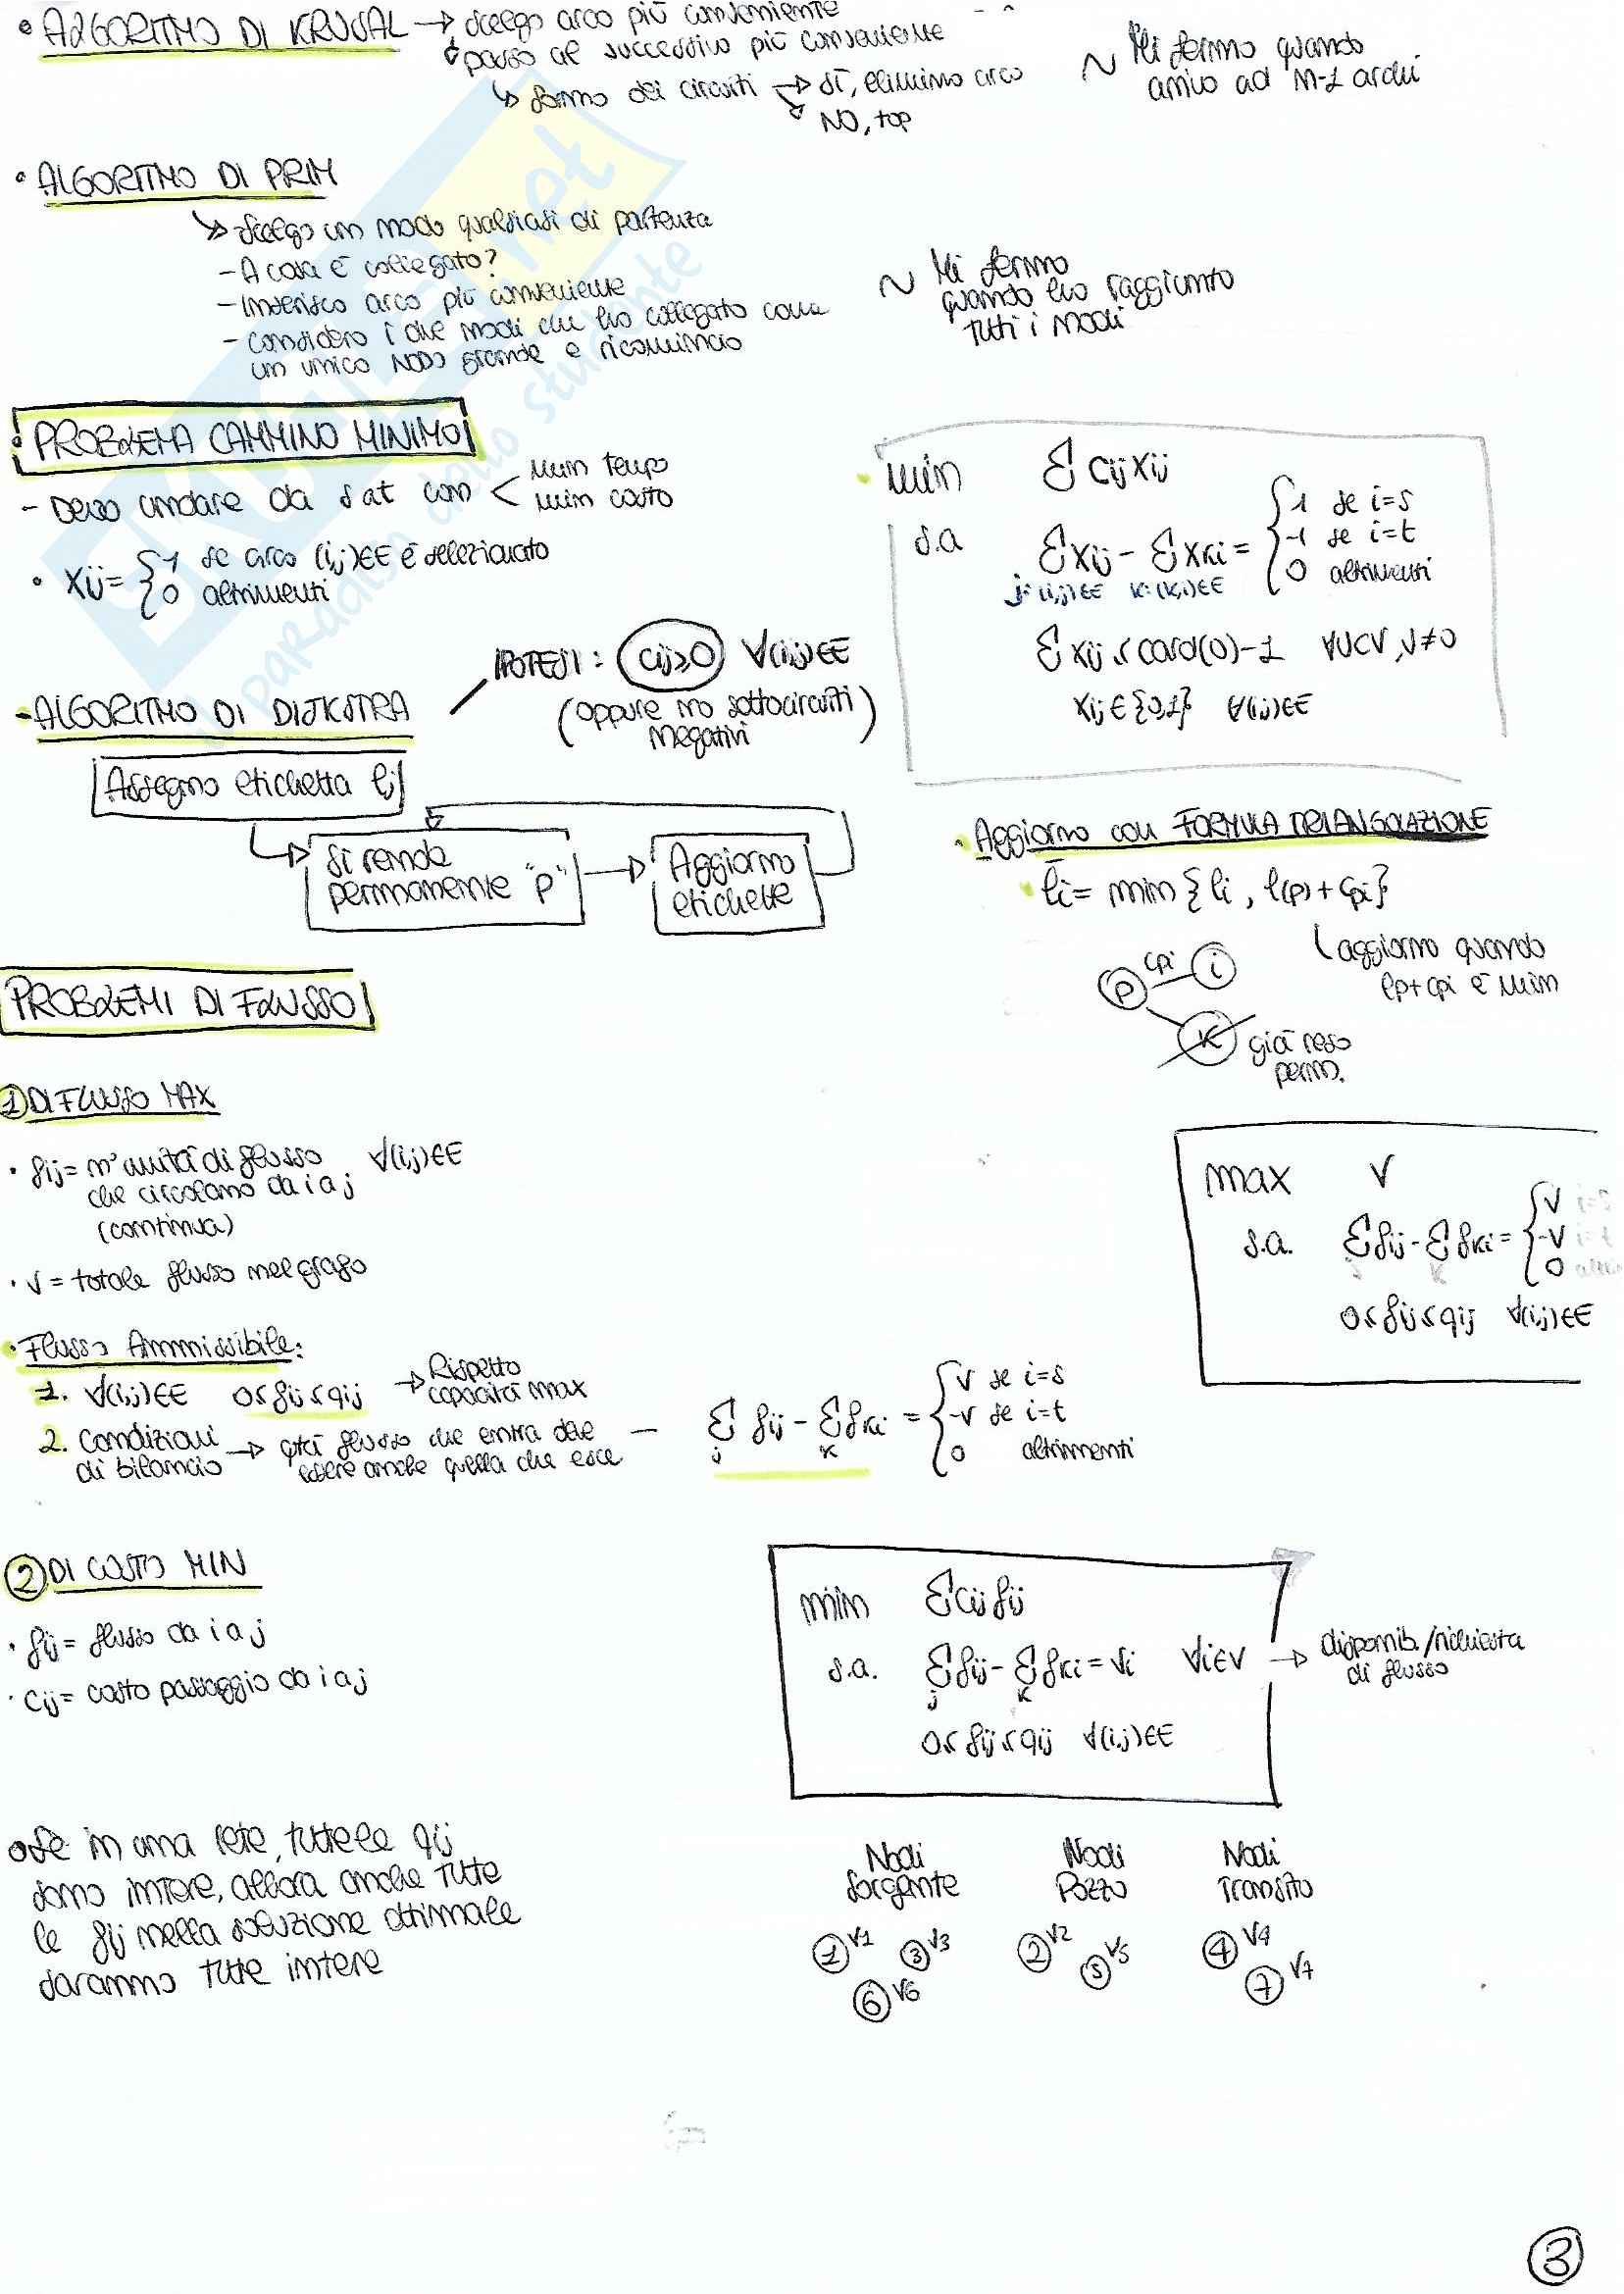 • ALGORITMO DI KRUSAL → scelgo arco più conveniente
↓ passo al successivo più conveniente
↳ formo dei circuiti → SÌ, elimino arco
↘ NO, top
~ Mi fermo quando
arrivo ad n-1 archi
• ALGORITMO DI PRIM
↳ scelgo un nodo qualsiasi di partenza
- A cosa è collegato?
- Inserisco arco più conveniente
- considero i due nodi che ho collegato come
un unico NODO grande e ricomincio
~ Mi fermo
quando ho raggiunto
tutti i nodi
• PROBLEMA CAMMINO MINIMO
- Devo andare da s a t con < min tempo
min costo
• xij = { 1 se arco (i,j)∈E è selezionato
0 altrimenti
• min Σ cij xij
s.a Σ xij - Σ xki = { 1 se i=s
-1 se i=t
0 altrimenti
j:(i,j)∈E k:(k,i)∈E
Σ xij ≤ card(U)-1 ∀U⊂V, U≠0
xij ∈ {0,1} ∀(i,j)∈E
- ALGORITMO DI DIJKSTRA
IPOTESI: cij≥0 ∀(i,j)∈E
(oppure no sottocircuiti
negativi)
Assegno etichetta lj
si rende
permanente "p"
Aggiorno
etichette
• Aggiorno con FORMULA TRIANGOLAZIONE
• l̄i = min {li, l(p) + cpi}
aggiorno quando
lp+cpi è min
p cpi i
k già reso
perm.
PROBLEMI DI FLUSSO
① DI FLUSSO MAX
• fij = n° unità di flusso ∀(i,j)∈E
che circolano da i a j
(continua)
• v = totale flusso nel grafo
max v
s.a. Σ fij - Σ fki = { v i=s
-v i=t
0
j k
0 ≤ fij ≤ qij ∀(i,j)∈E
• Flusso Ammissibile:
1. ∀(i,j)∈E 0 ≤ fij ≤ qij → Rispetto
capacità max
2. Condizioni
di bilancio → qtà flusso che entra deve
essere anche quella che esce
— Σ fij - Σ fki = { v se i=s
-v se i=t
0 altrimenti
j k
② DI COSTO MIN
• fij = flusso da i a j
• cij = costo passaggio da i a j
min Σ cij fij
s.a. Σ fij - Σ fki = vi ∀i∈V → disponib./richiesta
di flusso
j k
0 ≤ fij ≤ qij ∀(i,j)∈E
• Se in una rete, tutte le qij
sono intere, allora anche tutte
le fij nella soluzione ottimale
saranno tutte intere
Nodi
Sorgente
① v1 ③ v3
⑥ v6
Nodi
Pozzo
② v2
⑤ v5
Nodi
Transito
④ v4
⑦ v7
③